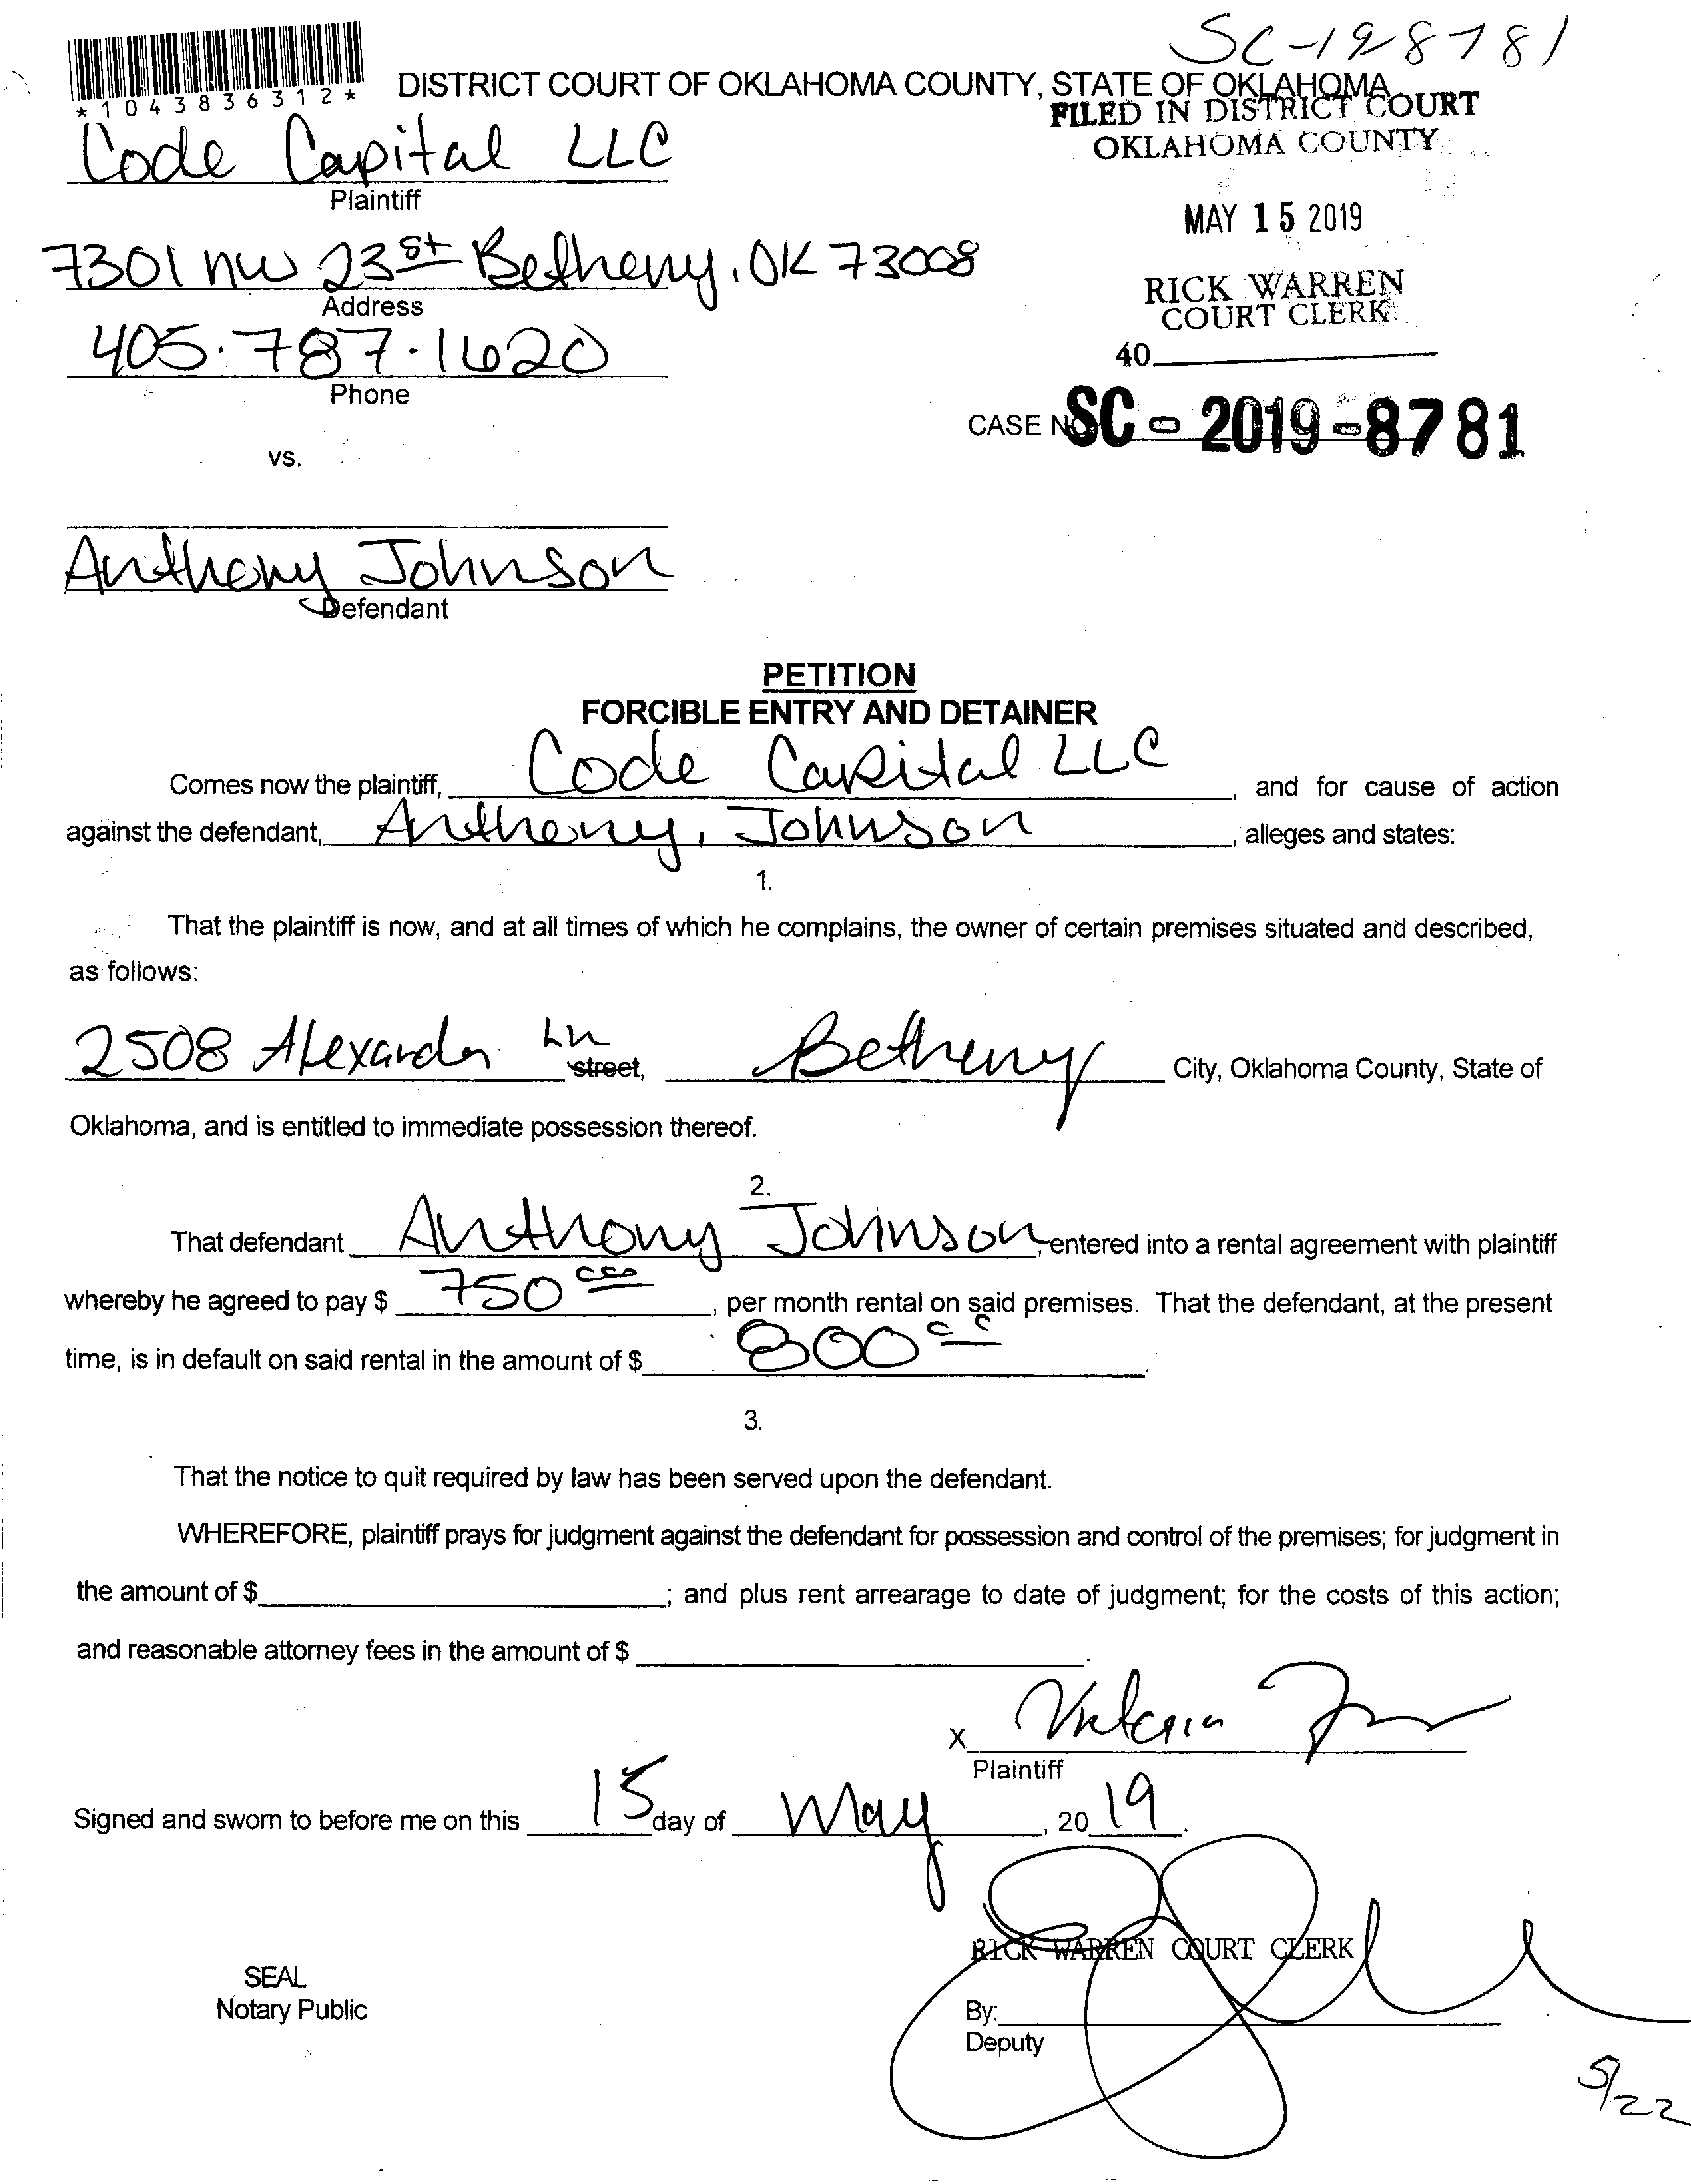 SC-198781
*1043836312*
DISTRICT COURT OF OKLAHOMA COUNTY, STATE OF OKLAHOMA
FILED IN DISTRICT COURT
OKLAHOMA COUNTY
Code Capital LLC
Plaintiff
MAY 15 2019
7301 NW 23st Bethany, OK 73008
Address
RICK WARREN
COURT CLERK
405.787.1620
Phone
40
CASE NO. SC-2019-8781
vs.
Anthony Johnson
Defendant
PETITION
FORCIBLE ENTRY AND DETAINER
Comes now the plaintiff, Code Capital LLC, and for cause of action
against the defendant, Anthony, Johnson, alleges and states:
1.
That the plaintiff is now, and at all times of which he complains, the owner of certain premises situated and described,
as follows:
2508 Alexander Ln street, Bethany City, Oklahoma County, State of
Oklahoma, and is entitled to immediate possession thereof.
2.
That defendant Anthony Johnson, entered into a rental agreement with plaintiff
whereby he agreed to pay $ 750, per month rental on said premises. That the defendant, at the present
time, is in default on said rental in the amount of $ 800.
3.
That the notice to quit required by law has been served upon the defendant.
WHEREFORE, plaintiff prays for judgment against the defendant for possession and control of the premises; for judgment in
the amount of $ ; and plus rent arrearage to date of judgment; for the costs of this action;
and reasonable attorney fees in the amount of $ .
X Victoria
Plaintiff
Signed and sworn to before me on this 15 day of May, 2019.
RICK WARREN COURT CLERK
SEAL
Notary Public
By:
Deputy
5/22